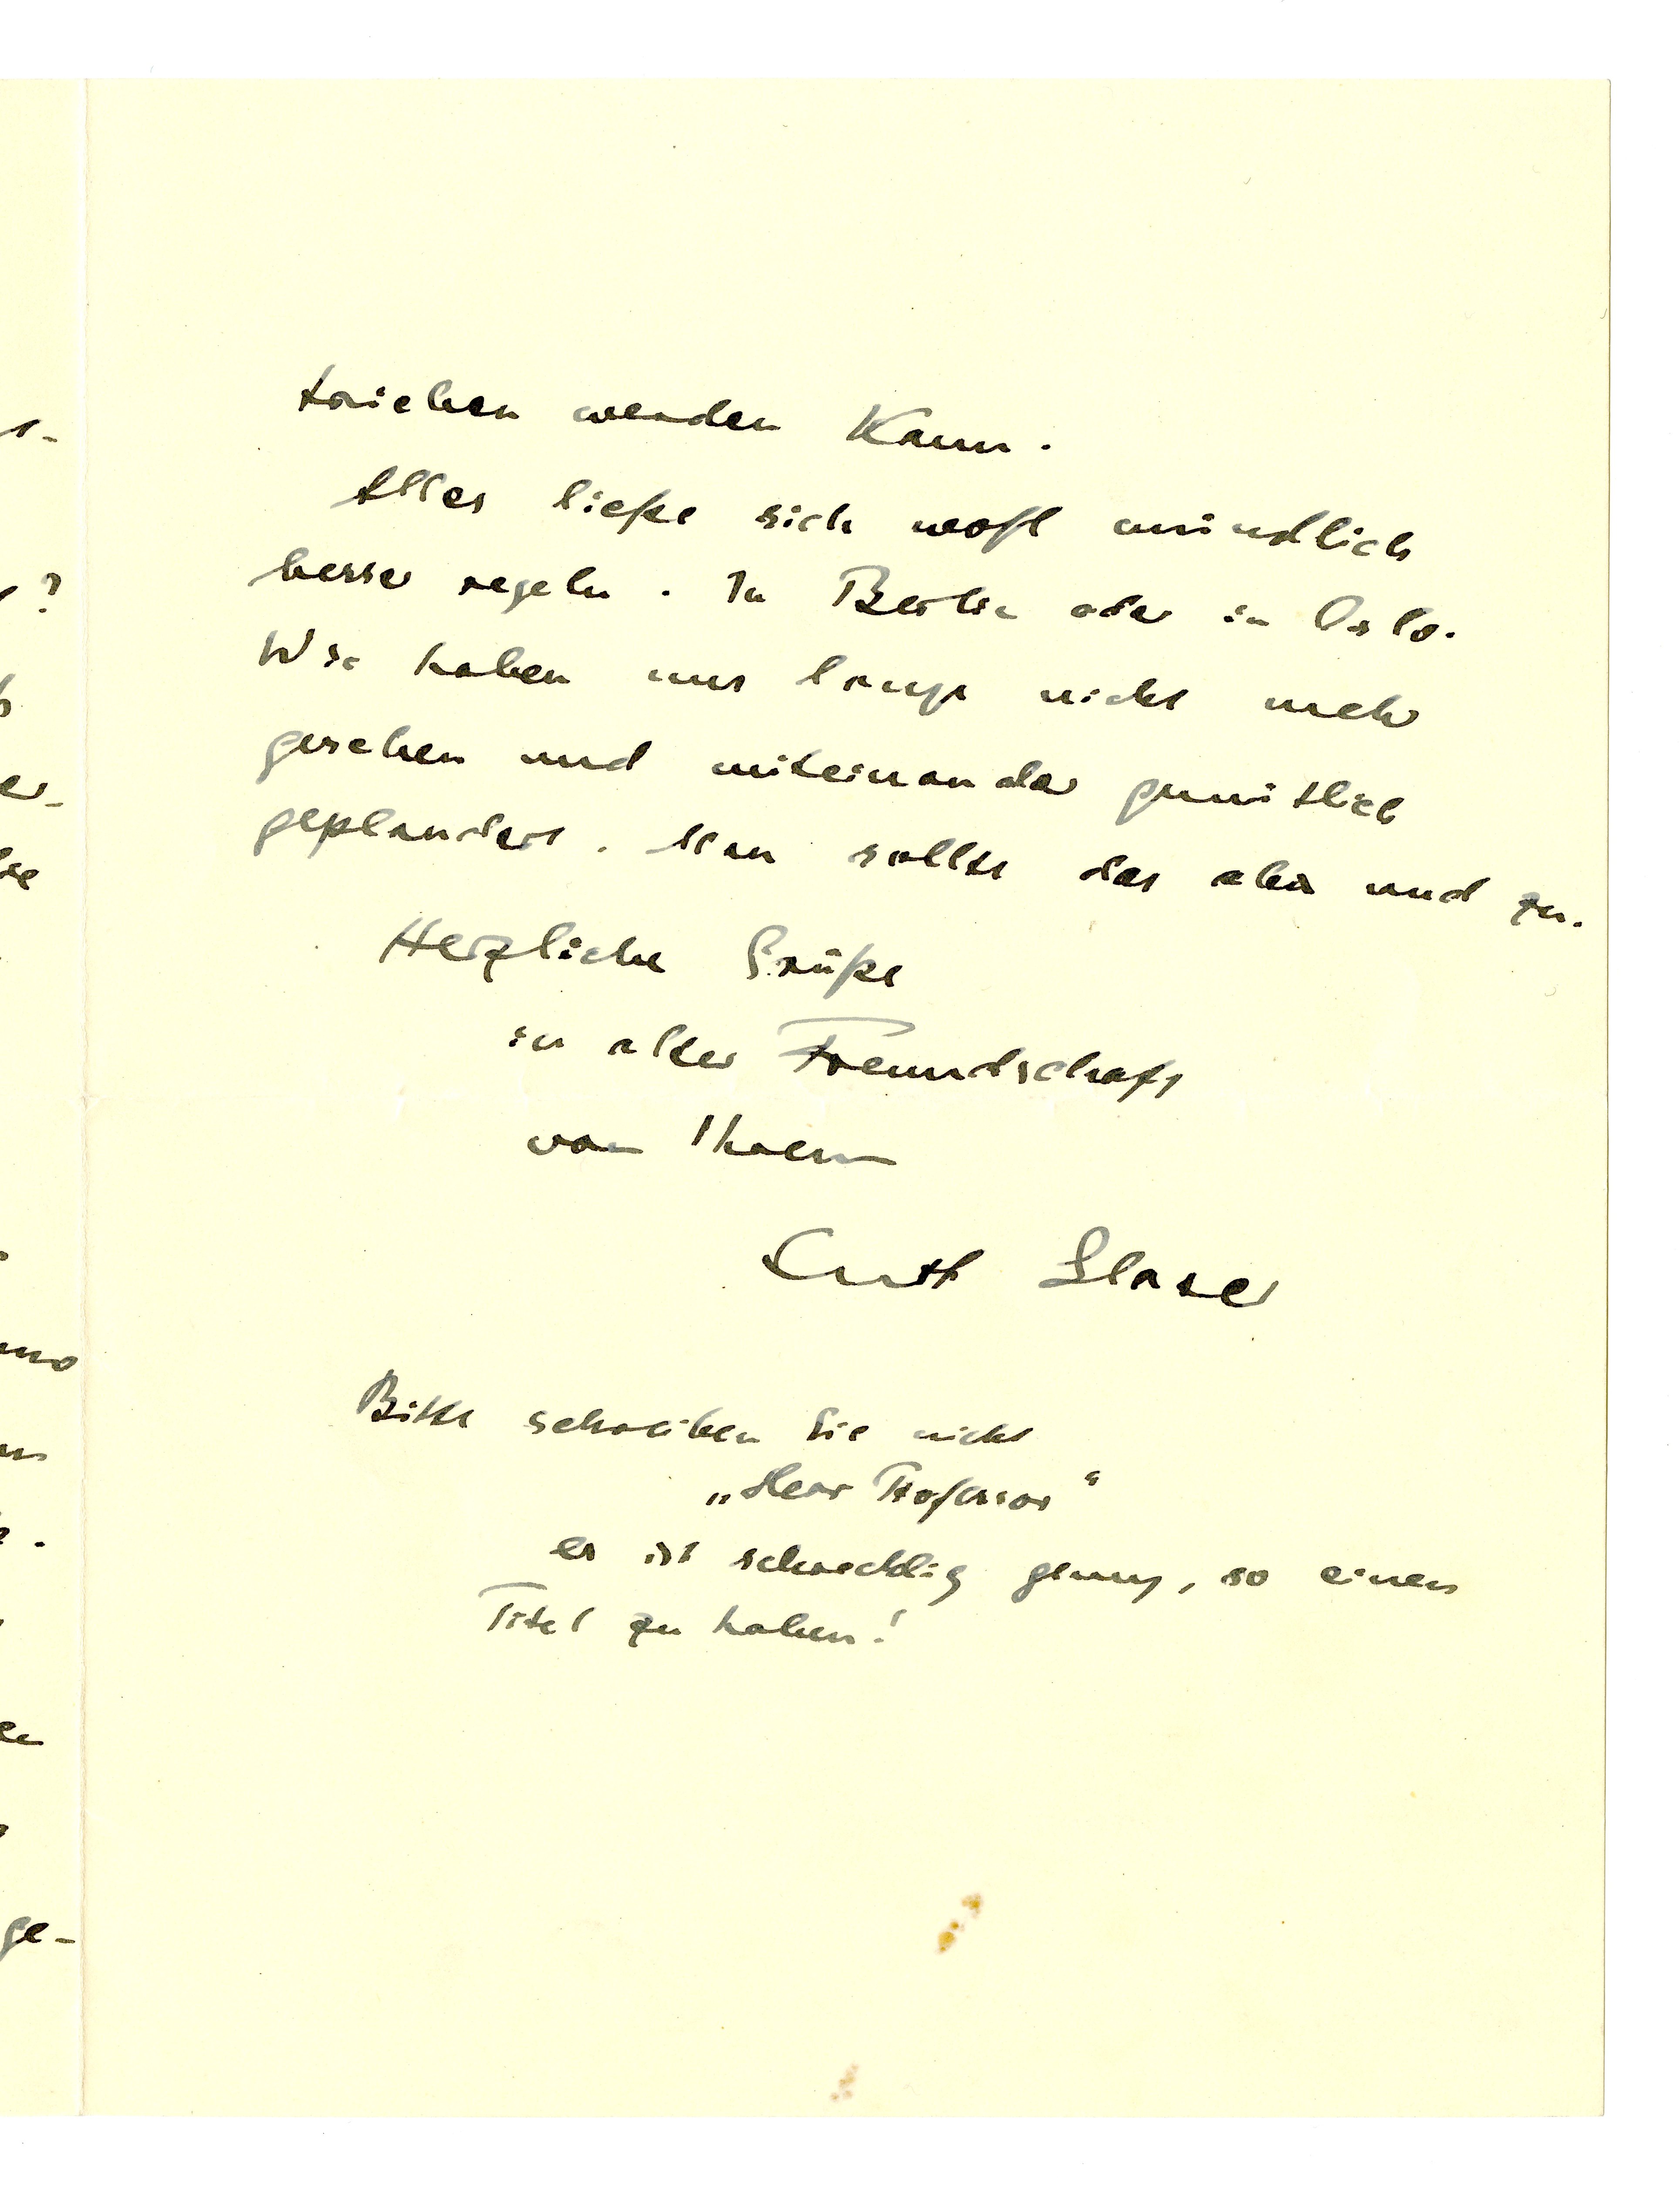 trieben werden kann.
Alles ließe sich wohl mündlich
besser regeln. In Berlin oder in Oslo.
Wir haben uns lange nicht mehr
gesehen und miteinander gemütlich
geplaudert. Man sollte das ab und zu.
Herzliche Grüße
in alter Freundschaft
von Ihrem
Curt Glaser
Bitte schreiben Sie nicht
„Herr Professor“
es ist schrecklig genug, so einen
Titel zu haben!